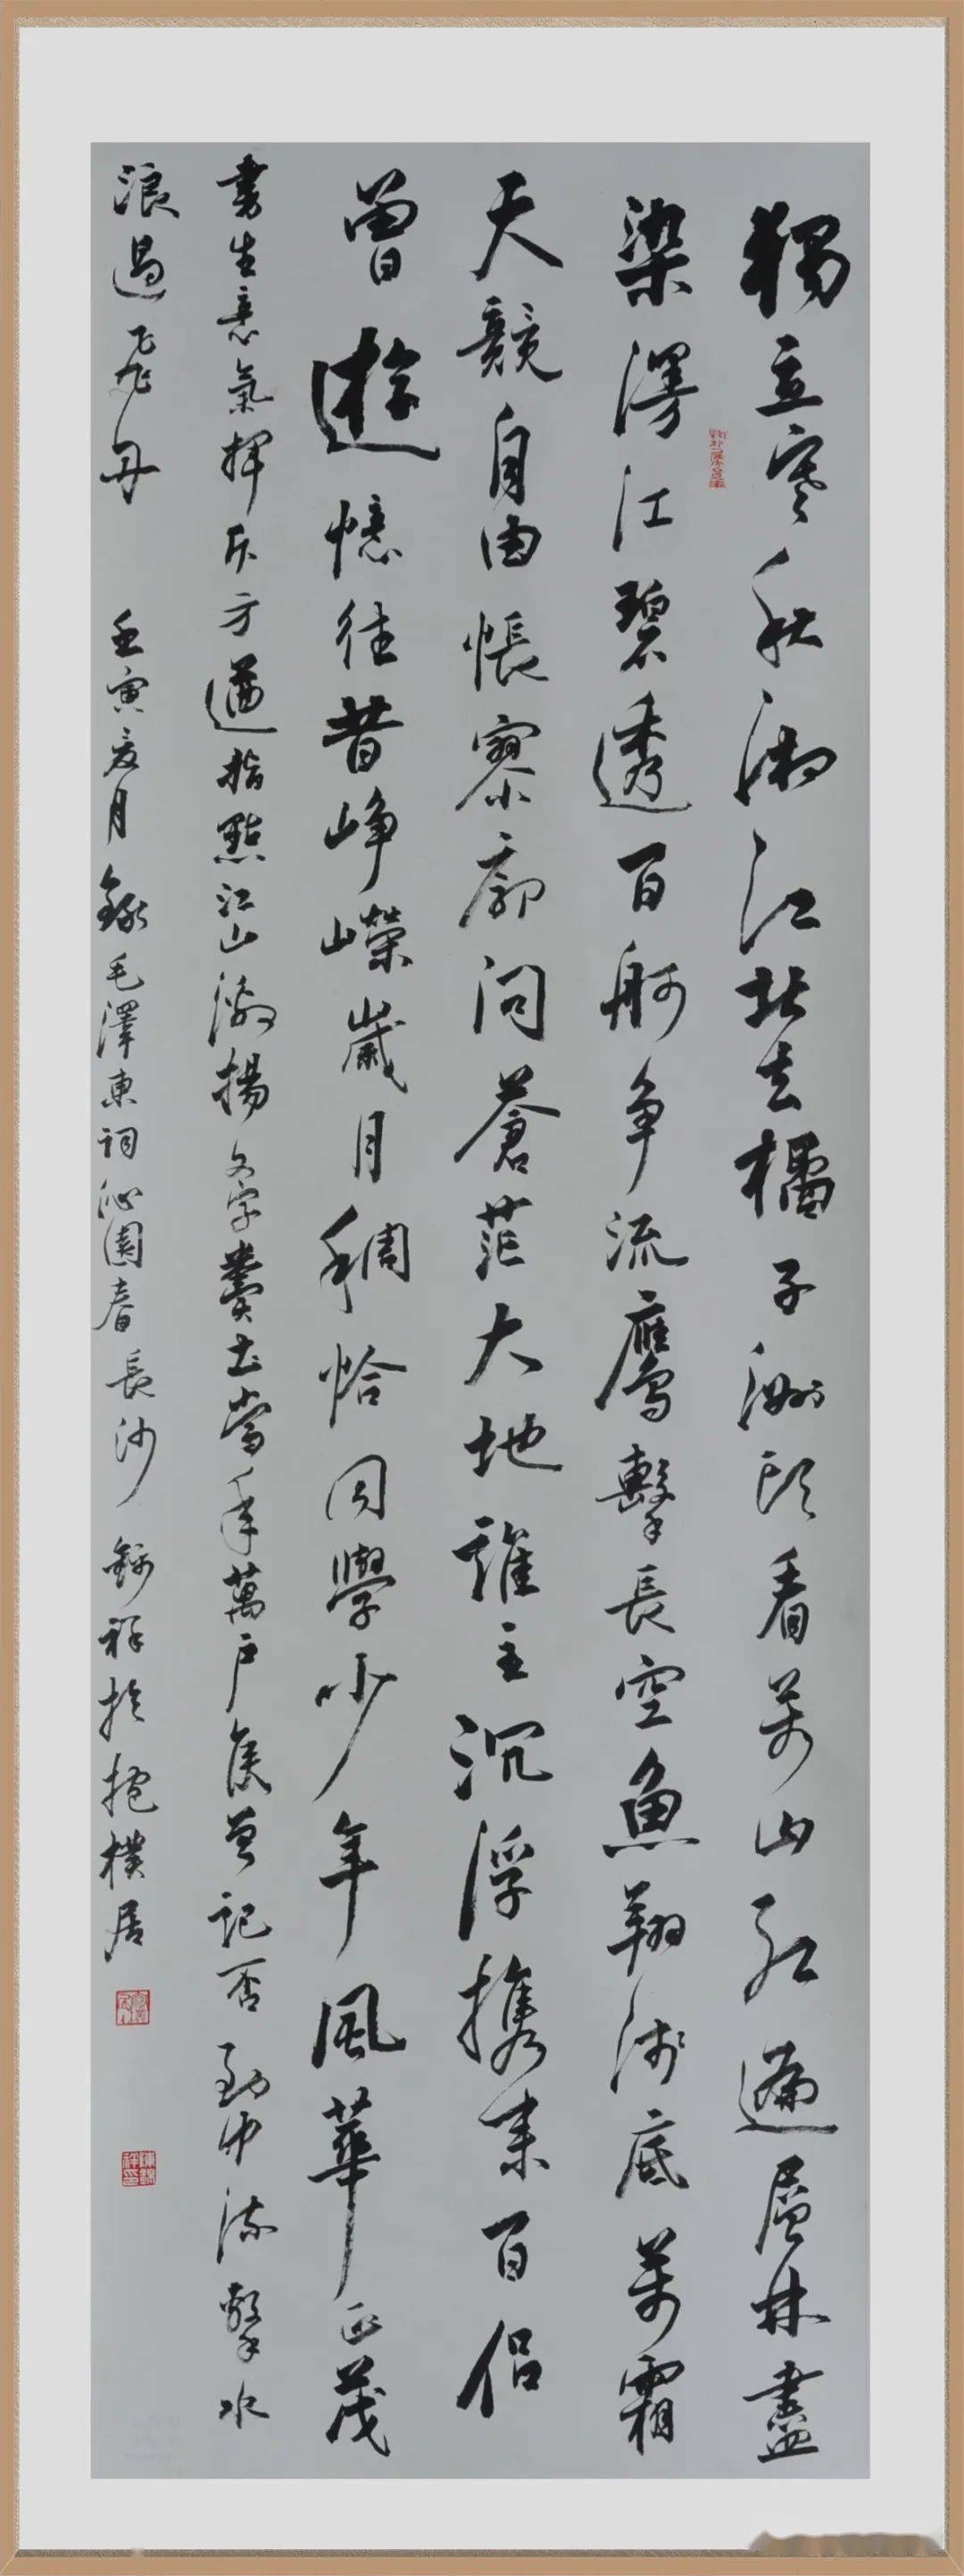 獨立寒秋湘江北去橘子洲頭看萬山紅遍層林盡
染漫江碧透百舸争流鷹擊長空魚翔淺底萬霜
天競自由悵寥廓問蒼茫大地誰主沉浮携来百侣
曾遊憶往昔峥嶸歲月稠恰同學少年風華正茂
書生意氣揮斥方遒指點江山激揚文字糞土當年萬户侯曾記否到中流擊水
浪遏飛舟 壬寅夏月錄毛澤東詞沁園春長沙 錦祥於抱樸居
陳錦祥印